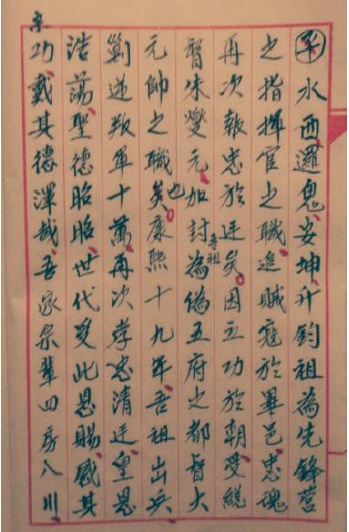 平水西邏鬼安坤,升鈞祖為先鋒營
之指揮官之職,追賊寇於畢邑,忠魂
再次報忠於廷矣。因立功於朝,受總
督朱燮元加討,吾祖為偽五府之都督大
元帥之職矣也。康熙十九年,吾祖出兵
剿逆叛軍十萬,再次孝忠清廷,皇恩
浩蕩,聖德昭昭,世代受此恩賜,感其
功,戴其德,渾哉,吾家宗輩四房八川,